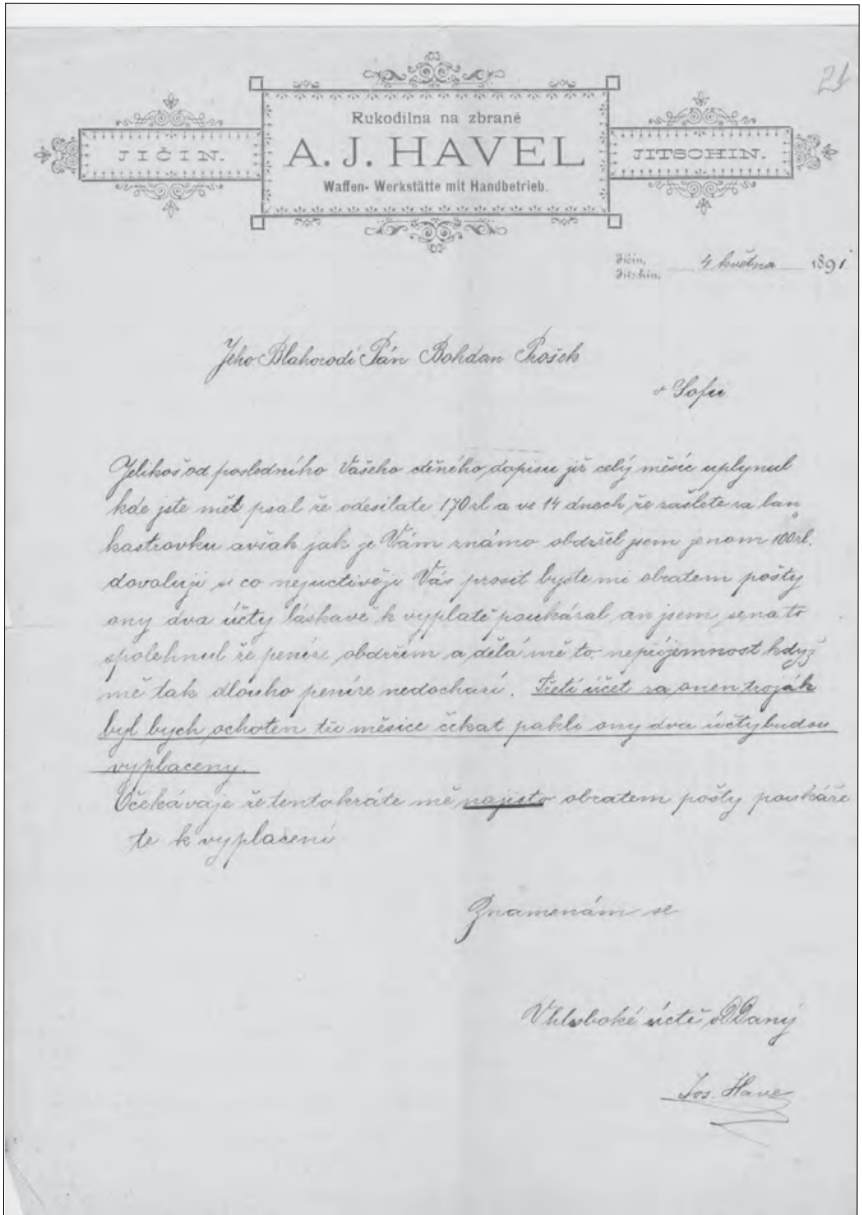 21
Rukodilna na zbraně
JIČIN.
A. J. HAVEL
JITSCHIN.
Waffen- Werkstätte mit Handbetrieb.
Jičin,
Jitschin, 4 května 1891
Jeho Blahorodí Pán Bohdan Prošek
v Sofii
Jelikož od posledního Vašeho ctěného dopisu již celý měsíc uplynul
kde jste mět psal že odesíláte 170 zl a ve 14 dnech že zašlete za lan
kastrovku avšak jak je Vám známo obdržel jsem jenom 100 zl.
dovoluji si co nejuctivěji Vás prosit byste mi obratem pošty
ony dva účty láskavě k vyplatě poukázal, an jsem se na to
spolehnul že peníze obdržím a dělá mě to nepříjemnost když
mě tak dlouho peníze nedochazí. Třetí účet za onen troják
byl bych ochoten tři měsíce čekat pakli ony dva účty budou
vyplaceny.
Očekávaje že tentokráte mě najisto obratem pošty poukáže
te k vyplacení
Znamenám se
V hluboké úctě oDDaný
Jos. Havel